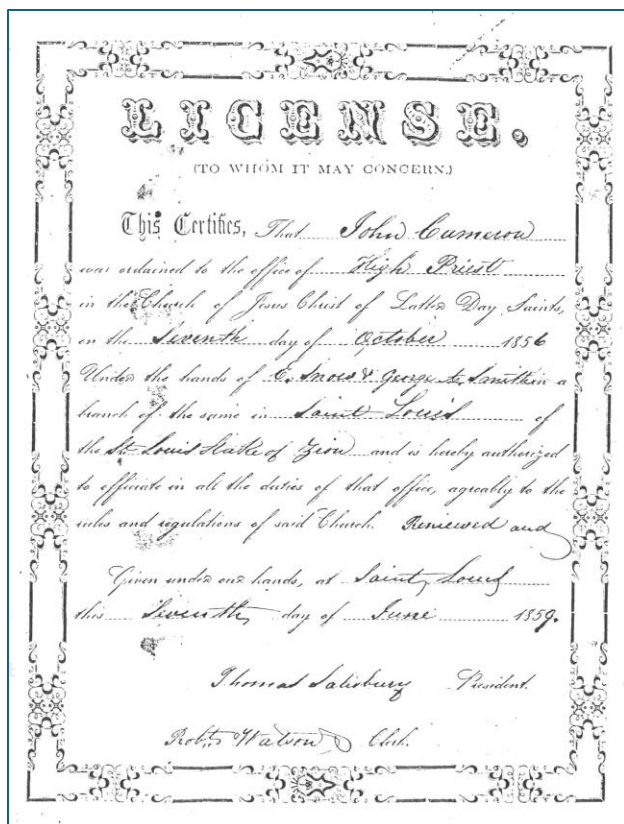 LICENSE.
(TO WHOM IT MAY CONCERN.)
This Certifies, That John Cameron
was ordained to the office of High Priest
in the Church of Jesus Christ of Latter Day Saints,
on the Seventh day of October 1856
Under the hands of E. Snow & George A. Smith in a
branch of the same in Saint Louis of
the St. Louis Stake of Zion and is hereby authorized
to officiate in all the duties of that office, agreably to the
rules and regulations of said Church. Reniewed and
Given under our hands, at Saint Louis
this Seventh day of June 1859.
Thomas Salisbury President.
Robt. Watson Clerk.